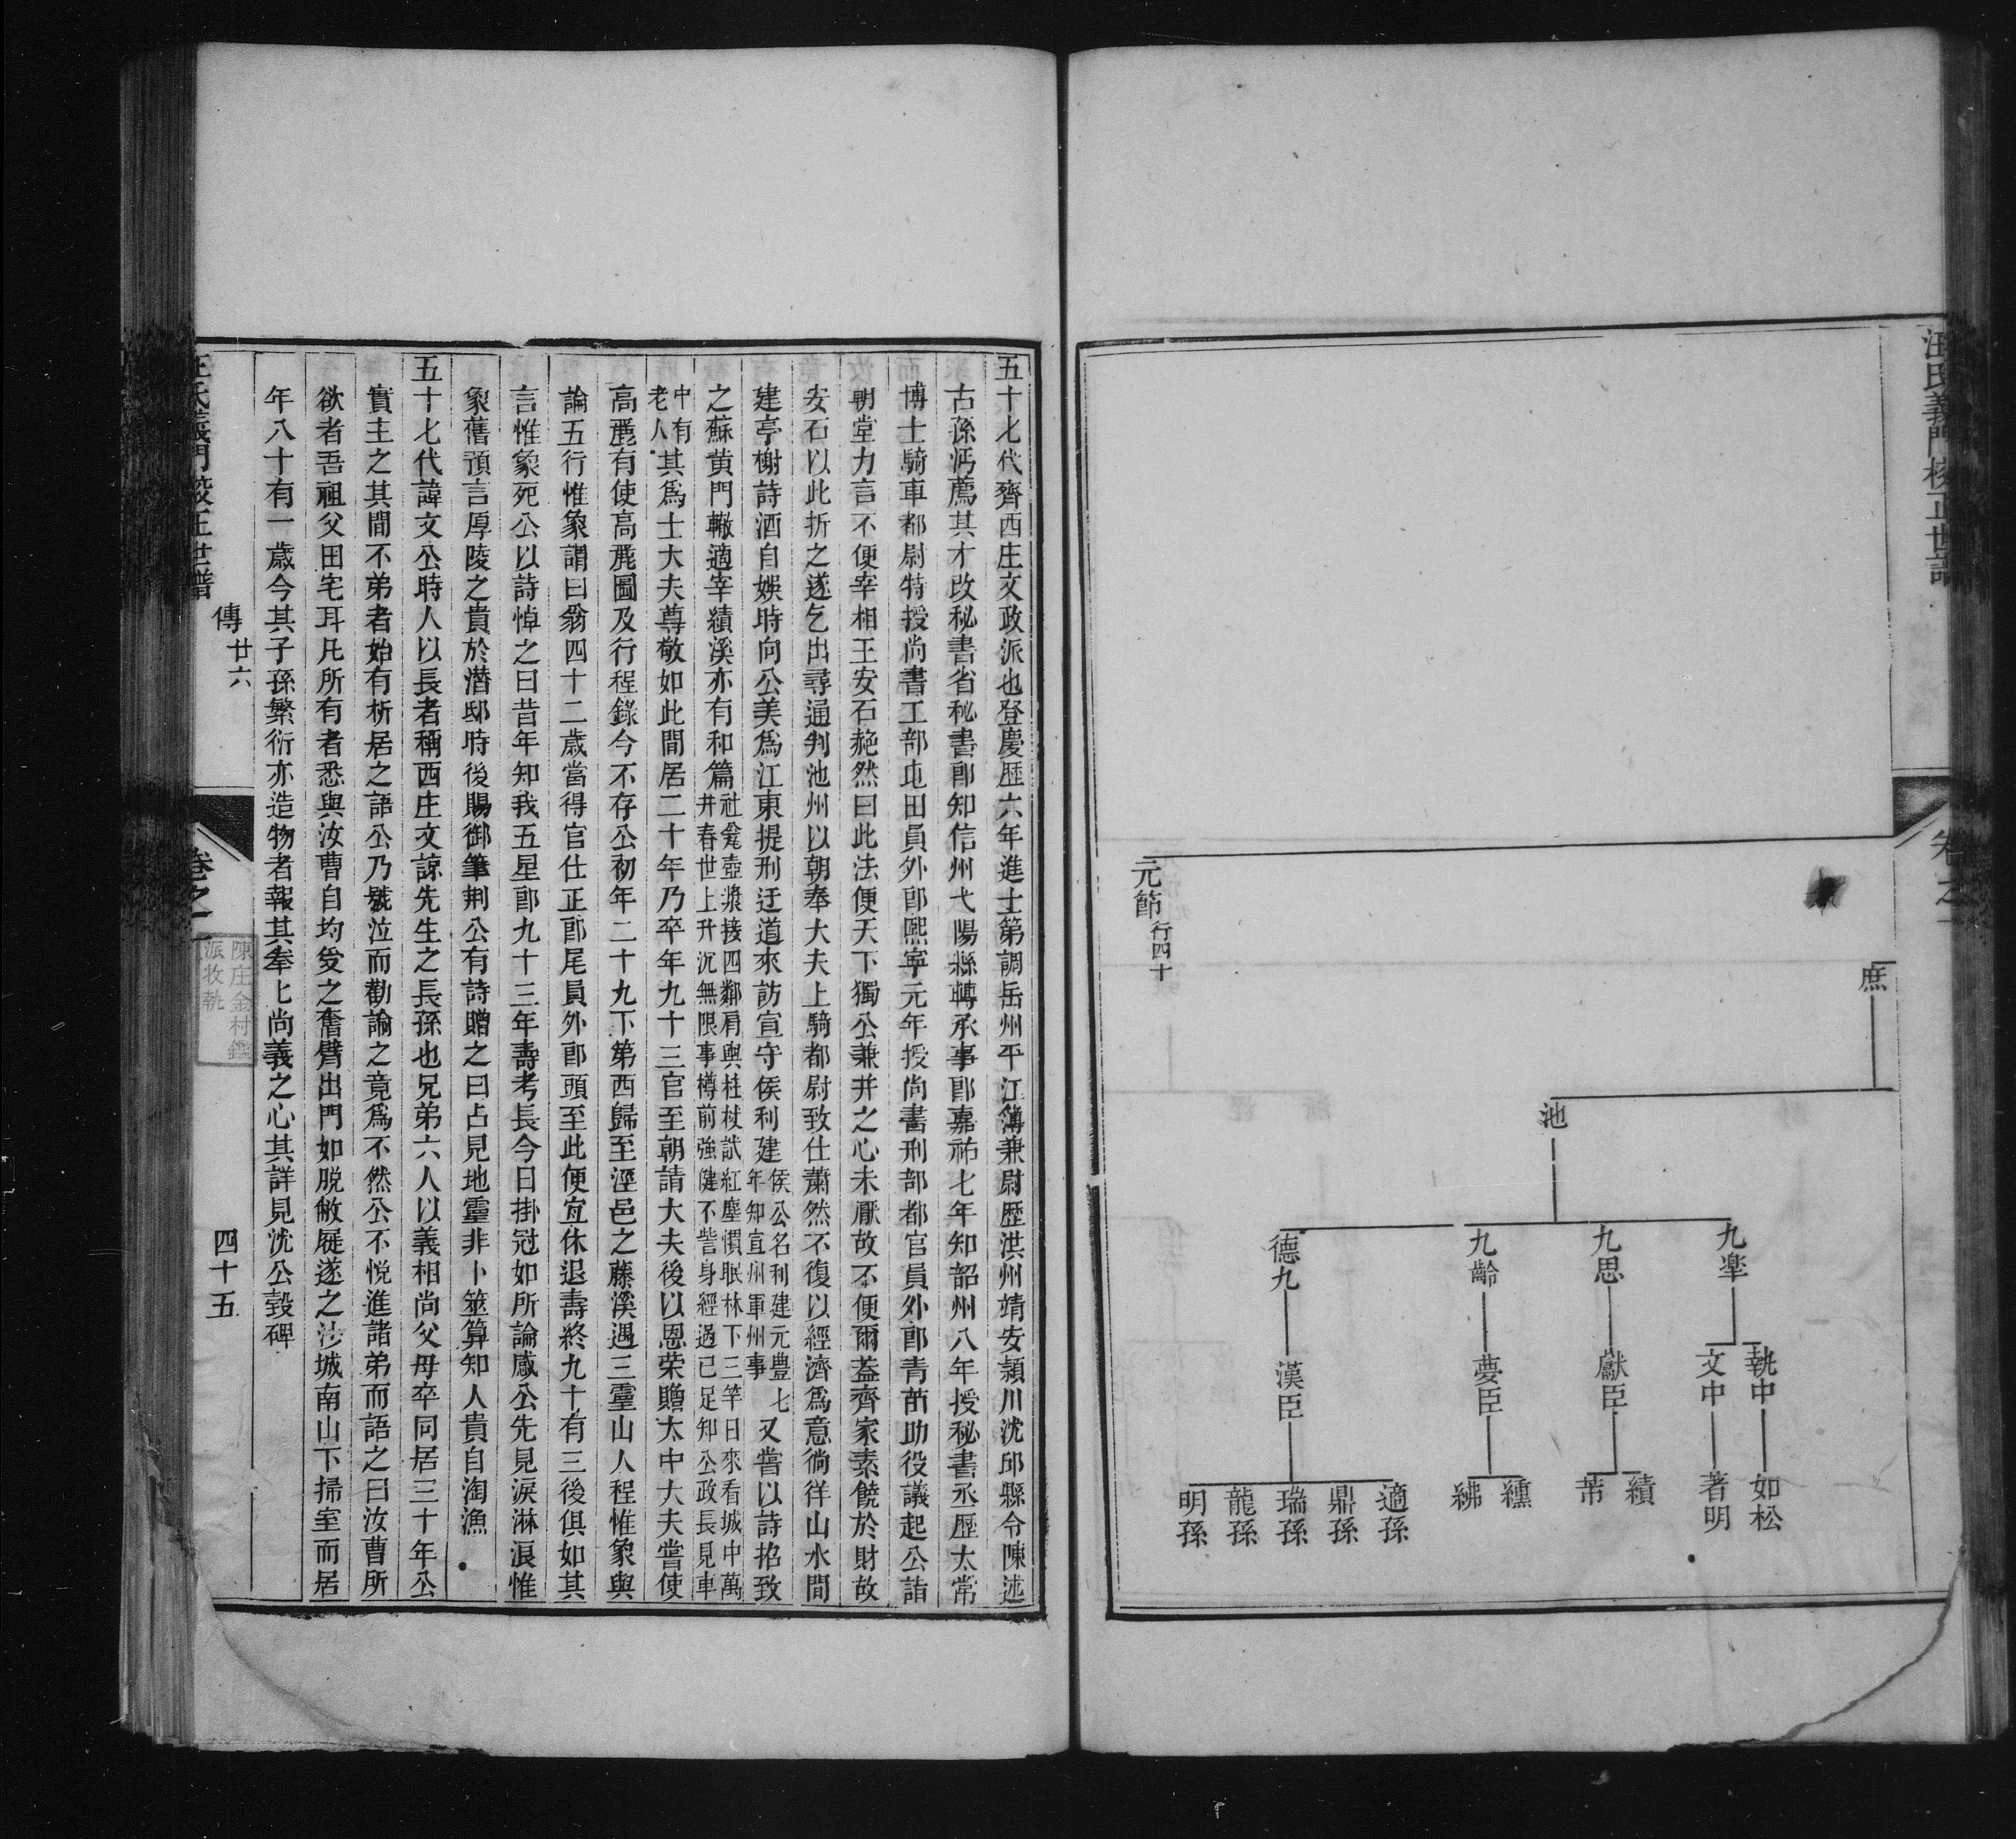 汪氏義門校正世譜
卷之一
庶
池
九睪
九思
九齡
德九
執中
文中
獻臣
夢臣
漢臣
如松
著明
績
芾
纁
紼
適孫
鼎孫
瑞孫
龍孫
明孫
元節行四十
五十七代齊西庄文政派也登慶歷六年進士第調岳州平江簿兼尉歷洪州靖安潁川沈邱縣令陳述
古孫沔薦其才改秘書省秘書郎知信州弋陽縣轉承事郎嘉祐七年知韶州八年授秘書丞歷太常
博士騎車都尉特授尚書工部屯田員外郎熙寧元年授尚書刑部都官員外郎青苗助役議起公詣
朝堂力言不便宰相王安石艴然曰此法便天下獨公兼并之心未厭故不便爾蓋齊家素饒於財故
安石以此折之遂乞出尋通判池州以朝奉大夫上騎都尉致仕蕭然不復以經濟爲意徜徉山水間
建亭榭詩酒自娛時向公美爲江東提刑迂道來訪宣守侯利建侯公名利建元豐七年知宣州軍州事又嘗以詩招致
之蘇黃門轍適宰績溪亦有和篇社瓮壺漿接四鄰肩輿柱杖試紅塵慣眠林下三竿日來看城中萬井春世上升沉無限事樽前強健不訾身經過已足知公政長見車
中有老人其爲士大夫尊敬如此間居二十年乃卒年九十三官至朝請大夫後以恩荣贈太中大夫嘗使
高麗有使高麗圖及行程錄今不存公初年二十九下第西歸至涇邑之藤溪遇三靈山人程惟象與
論五行惟象謂曰翁四十二歲當得官仕正郎尾員外郎頭至此便宜休退壽終九十有三後俱如其
言惟象死公以詩悼之曰昔年知我五星郎九十三年壽考長今日掛冠如所論感公先見淚淋浪惟
象舊預言厚陵之貴於潛邸時後賜御筆荆公有詩贈之曰占見地靈非卜筮算知人貴自淘漁
五十七代諱文公時人以長者稱西庄文諒先生之長孫也兄弟六人以義相尚父母卒同居三十年公
實主之其間不弟者始有析居之語公乃號泣而勸諭之竟爲不然公不悅進諸弟而語之曰汝曹所
欲者吾祖父田宅耳凡所有者悉與汝曹自均受之奮臂出門如脱敝屣遂之沙城南山下掃室而居
年八十有一歲今其子孫繁衍亦造物者報其奉上尚義之心其詳見沈公毅碑
汪氏義門校正世譜
傳
廿六
卷之一
四十五
陳庄金村鑑
派收執